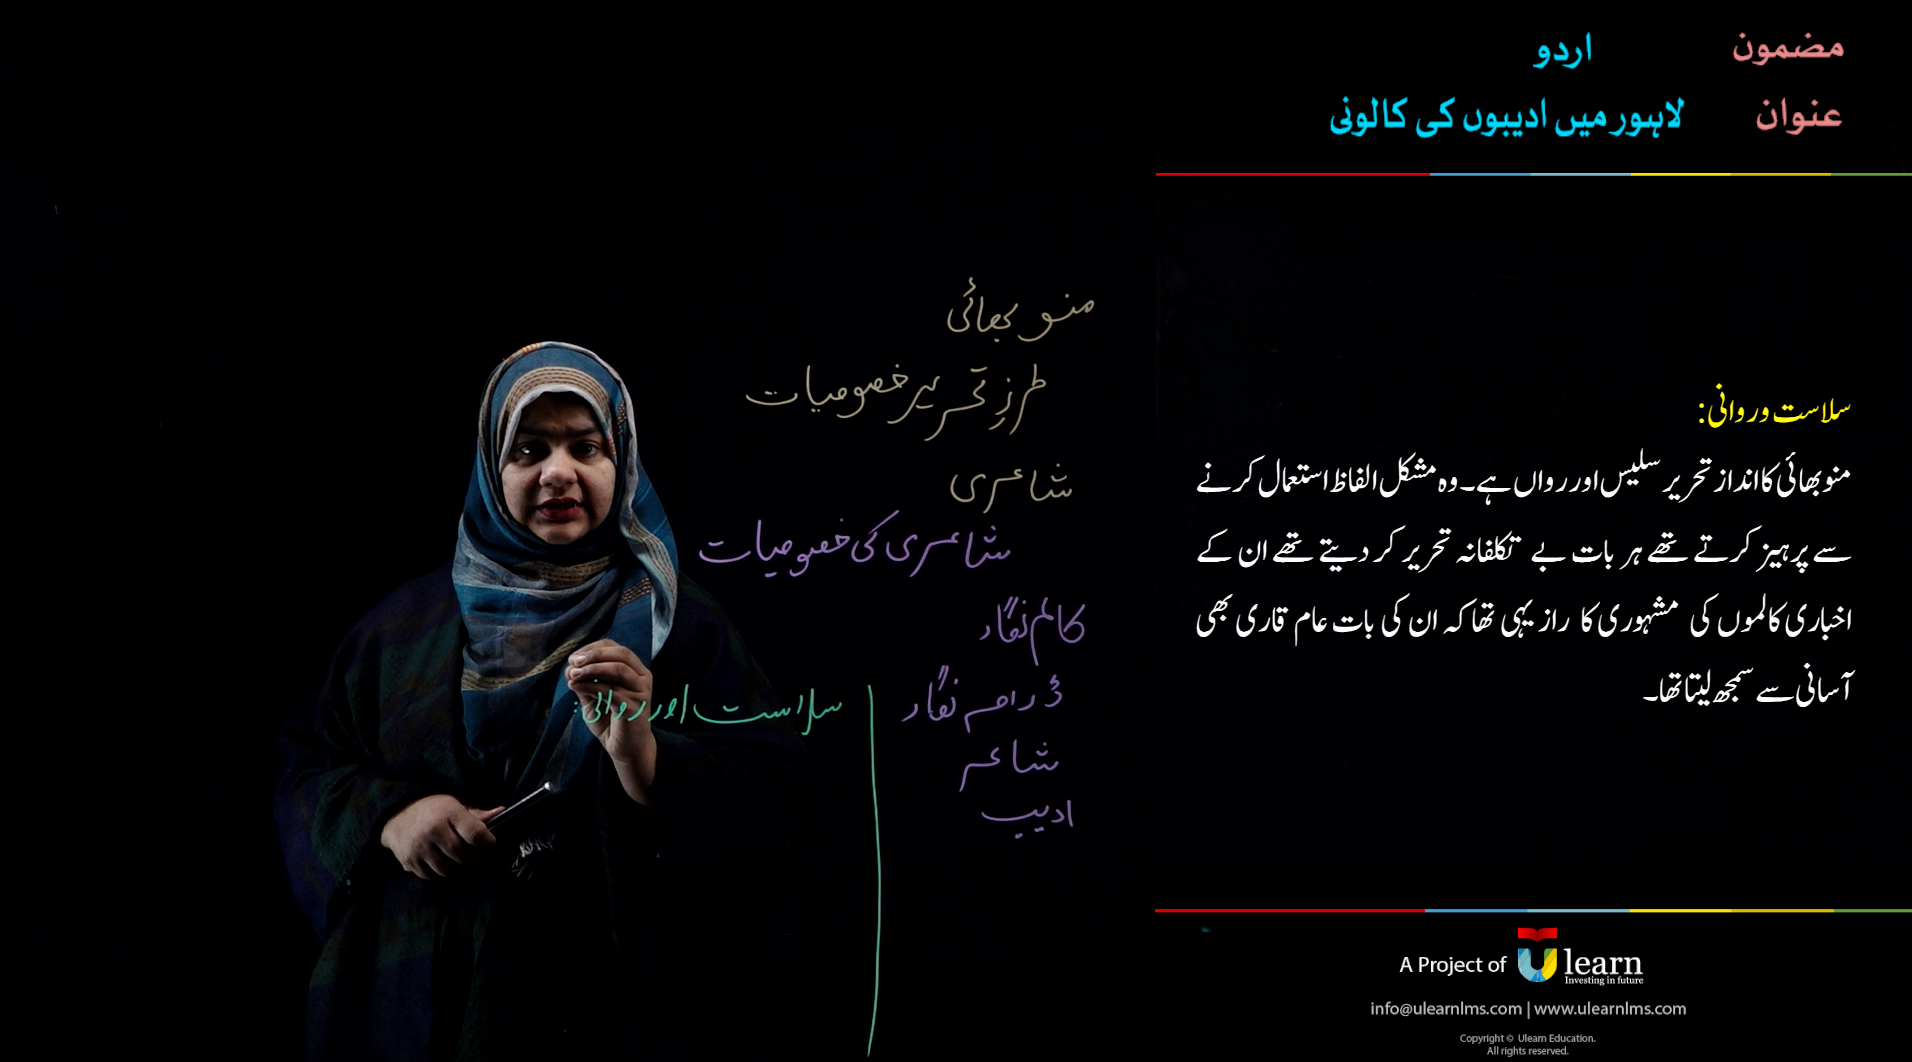 مضمون اردو
عنوان لاہور میں ادیبوں کی کالونی
منو بھائی
طرزِ تحریر خصوصیات
شاعری
شاعری کی خصوصیات
کالم نگار
ڈرامہ نگار
شاعر
ادیب
سلاست اور روانی:
سلاست و روانی:
منو بھائی کا انداز تحریر سلیس اور رواں ہے۔ وہ مشکل الفاظ استعمال کرنے
سے پرہیز کرتے تھے ہر بات بے تکلفانہ تحریر کر دیتے تھے ان کے
اخباری کالموں کی مشہوری کا راز یہی تھا کہ ان کی بات عام قاری بھی
آسانی سے سمجھ لیتا تھا۔
A Project of Ulearn
Investing in future
info@ulearnlms.com | www.ulearnlms.com
Copyright © Ulearn Education.
All rights reserved.